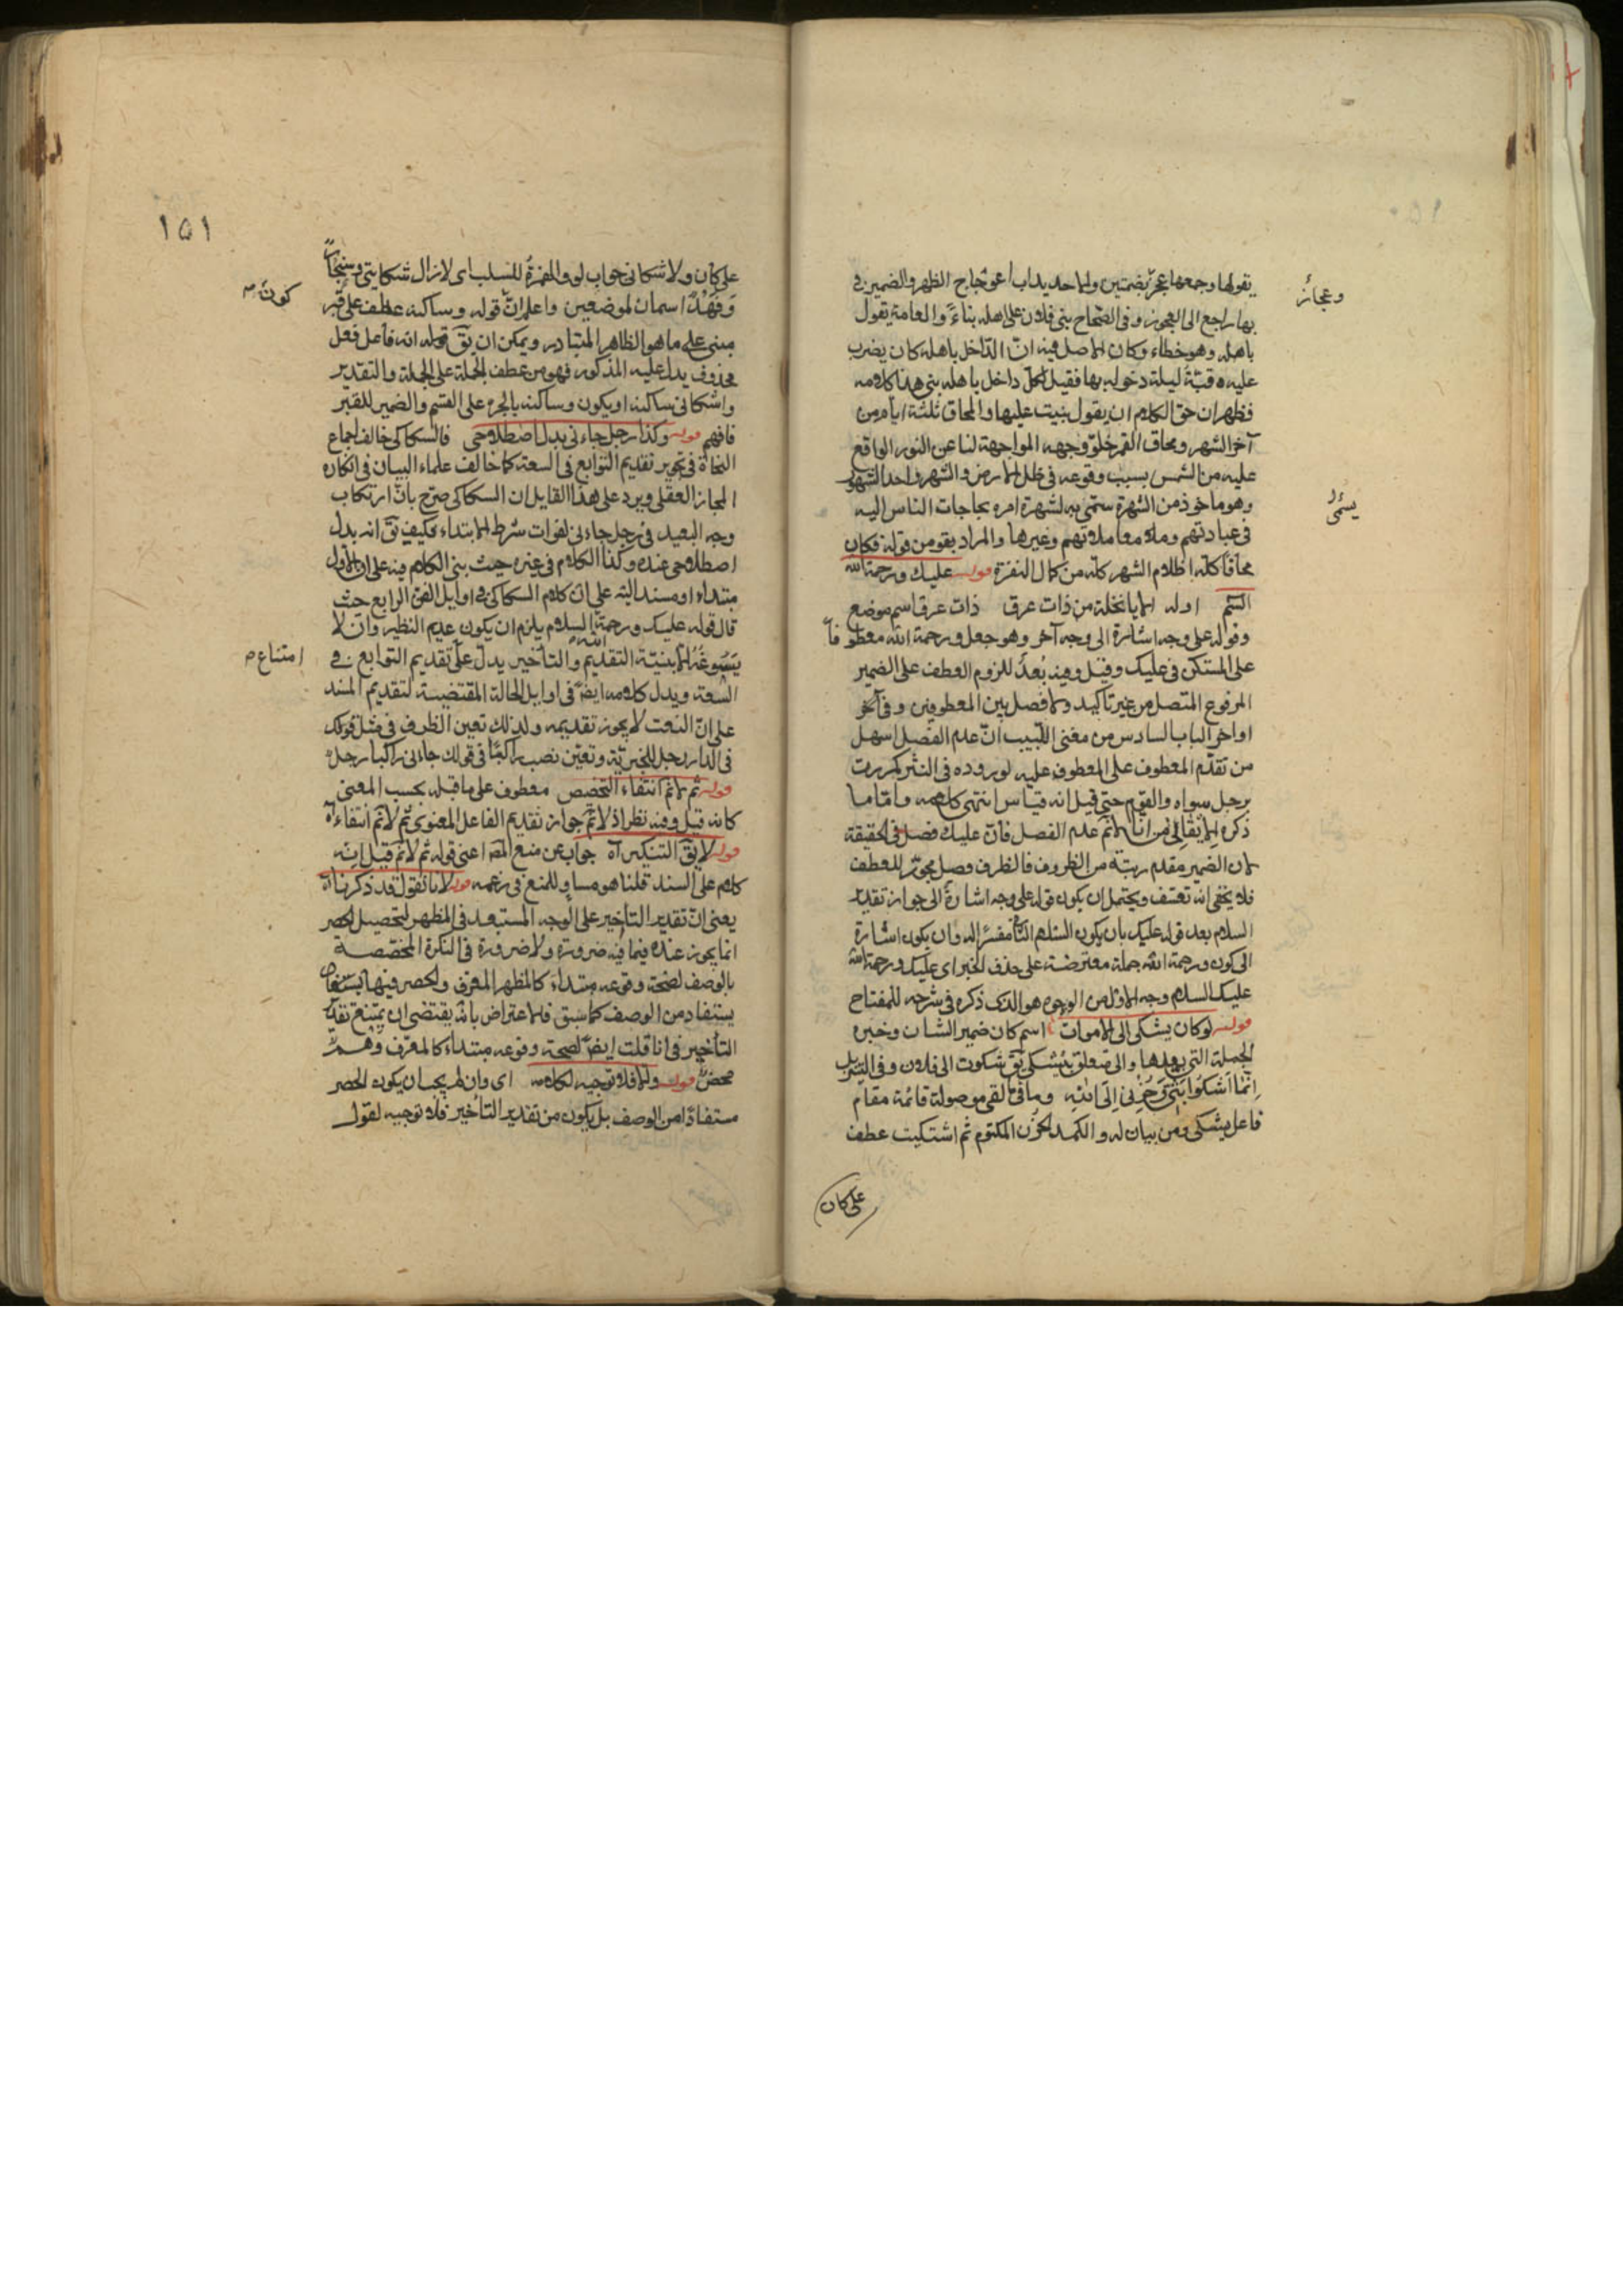 يقولها وجمعها عجز بضمتين والاحديداب اعوجاج الظهر والضمير في
وعجائز
بها راجع الى العجوز وفى الصحاح بنى فلان على اهله بناء والعامة تقول
باهله وهو خطاء وكان الاصل فيه ان الداخل باهله كان يضرب
عليه قبة ليلة دخوله بها فقيل لكل داخل باهله بنى هذا كلامه
فظهر ان حق الكلام ان يقول بنيت عليها والمحاق ثلثة ايام من
آخر الشهر ومحاق القمر خلو وجهه المواجهة لنا عن النور الواقع
عليه من الشمس بسبب وقوعه فى ظل الارض والشهر احد الشهور
وهو ماخوذ من الشهرة سمى به لشهرة امره بحاجات الناس اليه
يسمى
فى عباداتهم ومعاملاتهم وغيرها والمراد بقوم من قوله فكان
محاقا كله اظلام الشهر كله من كمال النفرة قوله عليك ورحمة الله
السلم اوله الا يا نخلة من ذات عرق ذات عرق اسم موضع
وقوله على وجه اشارة الى وجه آخر وهو جعل ورحمة الله معطوفا
على المستكن فى عليك وقيل وفيه بعد للزوم العطف على الضمير
المرفوع المتصل من غير تاكيد ولا فصل بين المعطوفين وفى آخر
اواخر الباب السادس من مغنى اللبيب ان عدم الفصل اسهل
من تقدم المعطوف على المعطوف عليه لوروده فى النثر كمررت
برجل سواء والقدم حتى قيل انه قياس انتهى كلامه واما ما
ذكره الا يقال من انا لا نم عدم الفصل فان عليك فصل فى الحقيقة
لان الضمير مقدم رتبة من الظروف فالظرف فصل مجوز للعطف
فلا يخفى انه تعسف ويحتمل ان يكون قوله على وجه اشارة الى جواز تقدير
السلام بعد قوله عليك بان يكون السلام الثانى مفسرا له وان يكون اشارة
الى كون ورحمة الله جملة معترضة على حذف الخبر اى عليك ورحمة الله
عليك السلام وجه الاول من الوجوه هو الذى ذكره فى شرحه للمفتاح
قوله لو كان يشكى الى الاموات اسم كان ضمير الشان وخبره
الجملة التى بعدها والى متعلق بيشكى يق شكوت الى فلان وفى التنزيل
انما اشكوا بثى وحزنى الى الله وما فى ما لقى موصولة قائمة مقام
فاعل يشكى ومن بيان له والكمد الحزن المكتوم ثم اشتكيت عطف
على كان
١٥١
على كان ولاشكانى جواب لو والهمزة للسلب اى لازال شكايتى وسنجار
وقهد اسمان لموضعين واعلم ان قوله وساكنه عطف على قبر
كون م
مبنى على ما هو الظاهر المتبادر ويمكن ان يق قوله انه فاعل فعل
محذوف يدل عليه المذكور فهو من عطف الجملة على الجملة والتقدير
واشكانى ساكنه او يكون وساكنه بالجر على القسم والضمير للقبر
فافهم قوله وكذا رجل جاءنى بدل اصطلاحى فالسكاكى خالف اجماع
النحاة فى تجويز تقديم التوابع فى السعة كما خالف علماء البيان فى انكاره
المجاز العقلى ويرد على هذا القايل ان السكاكى صرح بان ارتكاب
وجه البعيد فى رجل جاءنى لفوات شرط الابتداء فكيف يق انه بدل
اصطلاحى عنده وكذا الكلام فى غيره حيث بنى الكلام فيه على ان الاول
مبتداء او مسند اليه على ان كلام السكاكى فى اوايل الفن الرابع حيث
قال قوله عليك ورحمة الله السلام يلزم ان يكون عديم النظير وان لا
يسوغ الا بنية التقديم والتأخير يدل على تقديم التوابع فى
امتناع م
السعة ويدل كلامه ايض فى اوايل الحالة المقتضية لتقديم المسند
على ان النعت لا يجوز تقديمه ولذلك تعين الظرف فى مثل قولك
فى الدار رجل للخبرية وتعين نصب راكبا فى قولك جاءنى راكبا رجل
قوله ثم لا نم انتفاء التخصص معطوف على ما قبله بحسب المعنى
كانه قيل وفيه نظر اذ لا نم جواز تقديم الفاعل المعنوى ثم لا نم انتفاء آه
قوله لا يق التنكير آه جواب عن منع المص اعنى قوله ثم لا نم قيل انه
كلام على السند قلنا هو مساو للمنع فى زعمه قوله لانا نقول قد ذكرنا آه
يعنى ان تقدير التأخير على الوجه المستبعد فى المظهر لتحصيل الحصر
انما يجوز عنده فيما فيه ضرورة ولا ضرورة فى النكرة المخصصة
بالوصف لصحة وقوعه مبتداء كالمظهر المعرف والحصر فيها
يستفاد من الوصف كما سبق فالاعتراض بانه يقتضى ان يمتنع تقدير
التأخير فى انا قلت ايض لصحة وقوعه مبتداء كالمعرف وهم
محض قوله والا فلا توجيه لكلامه اى وان لم يجب ان يكون الحصر
مستفادا من الوصف بل يكون من تقدير التأخير فلا توجيه لقول